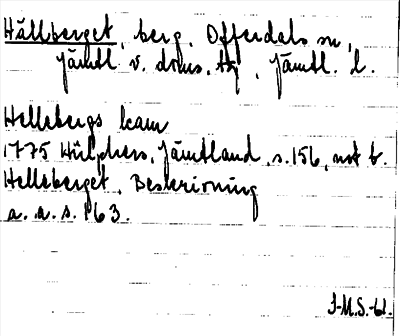 Hällberget, berg, Offerdals sn,
Jämtl. v. doms. tg, Jämtl. l.
Hellebergs kam
1775 Hülphers, Jämtland, s. 156, not b.
Helleberget, Beskrivning
a. a. s. 163.
J-M.S.-61.